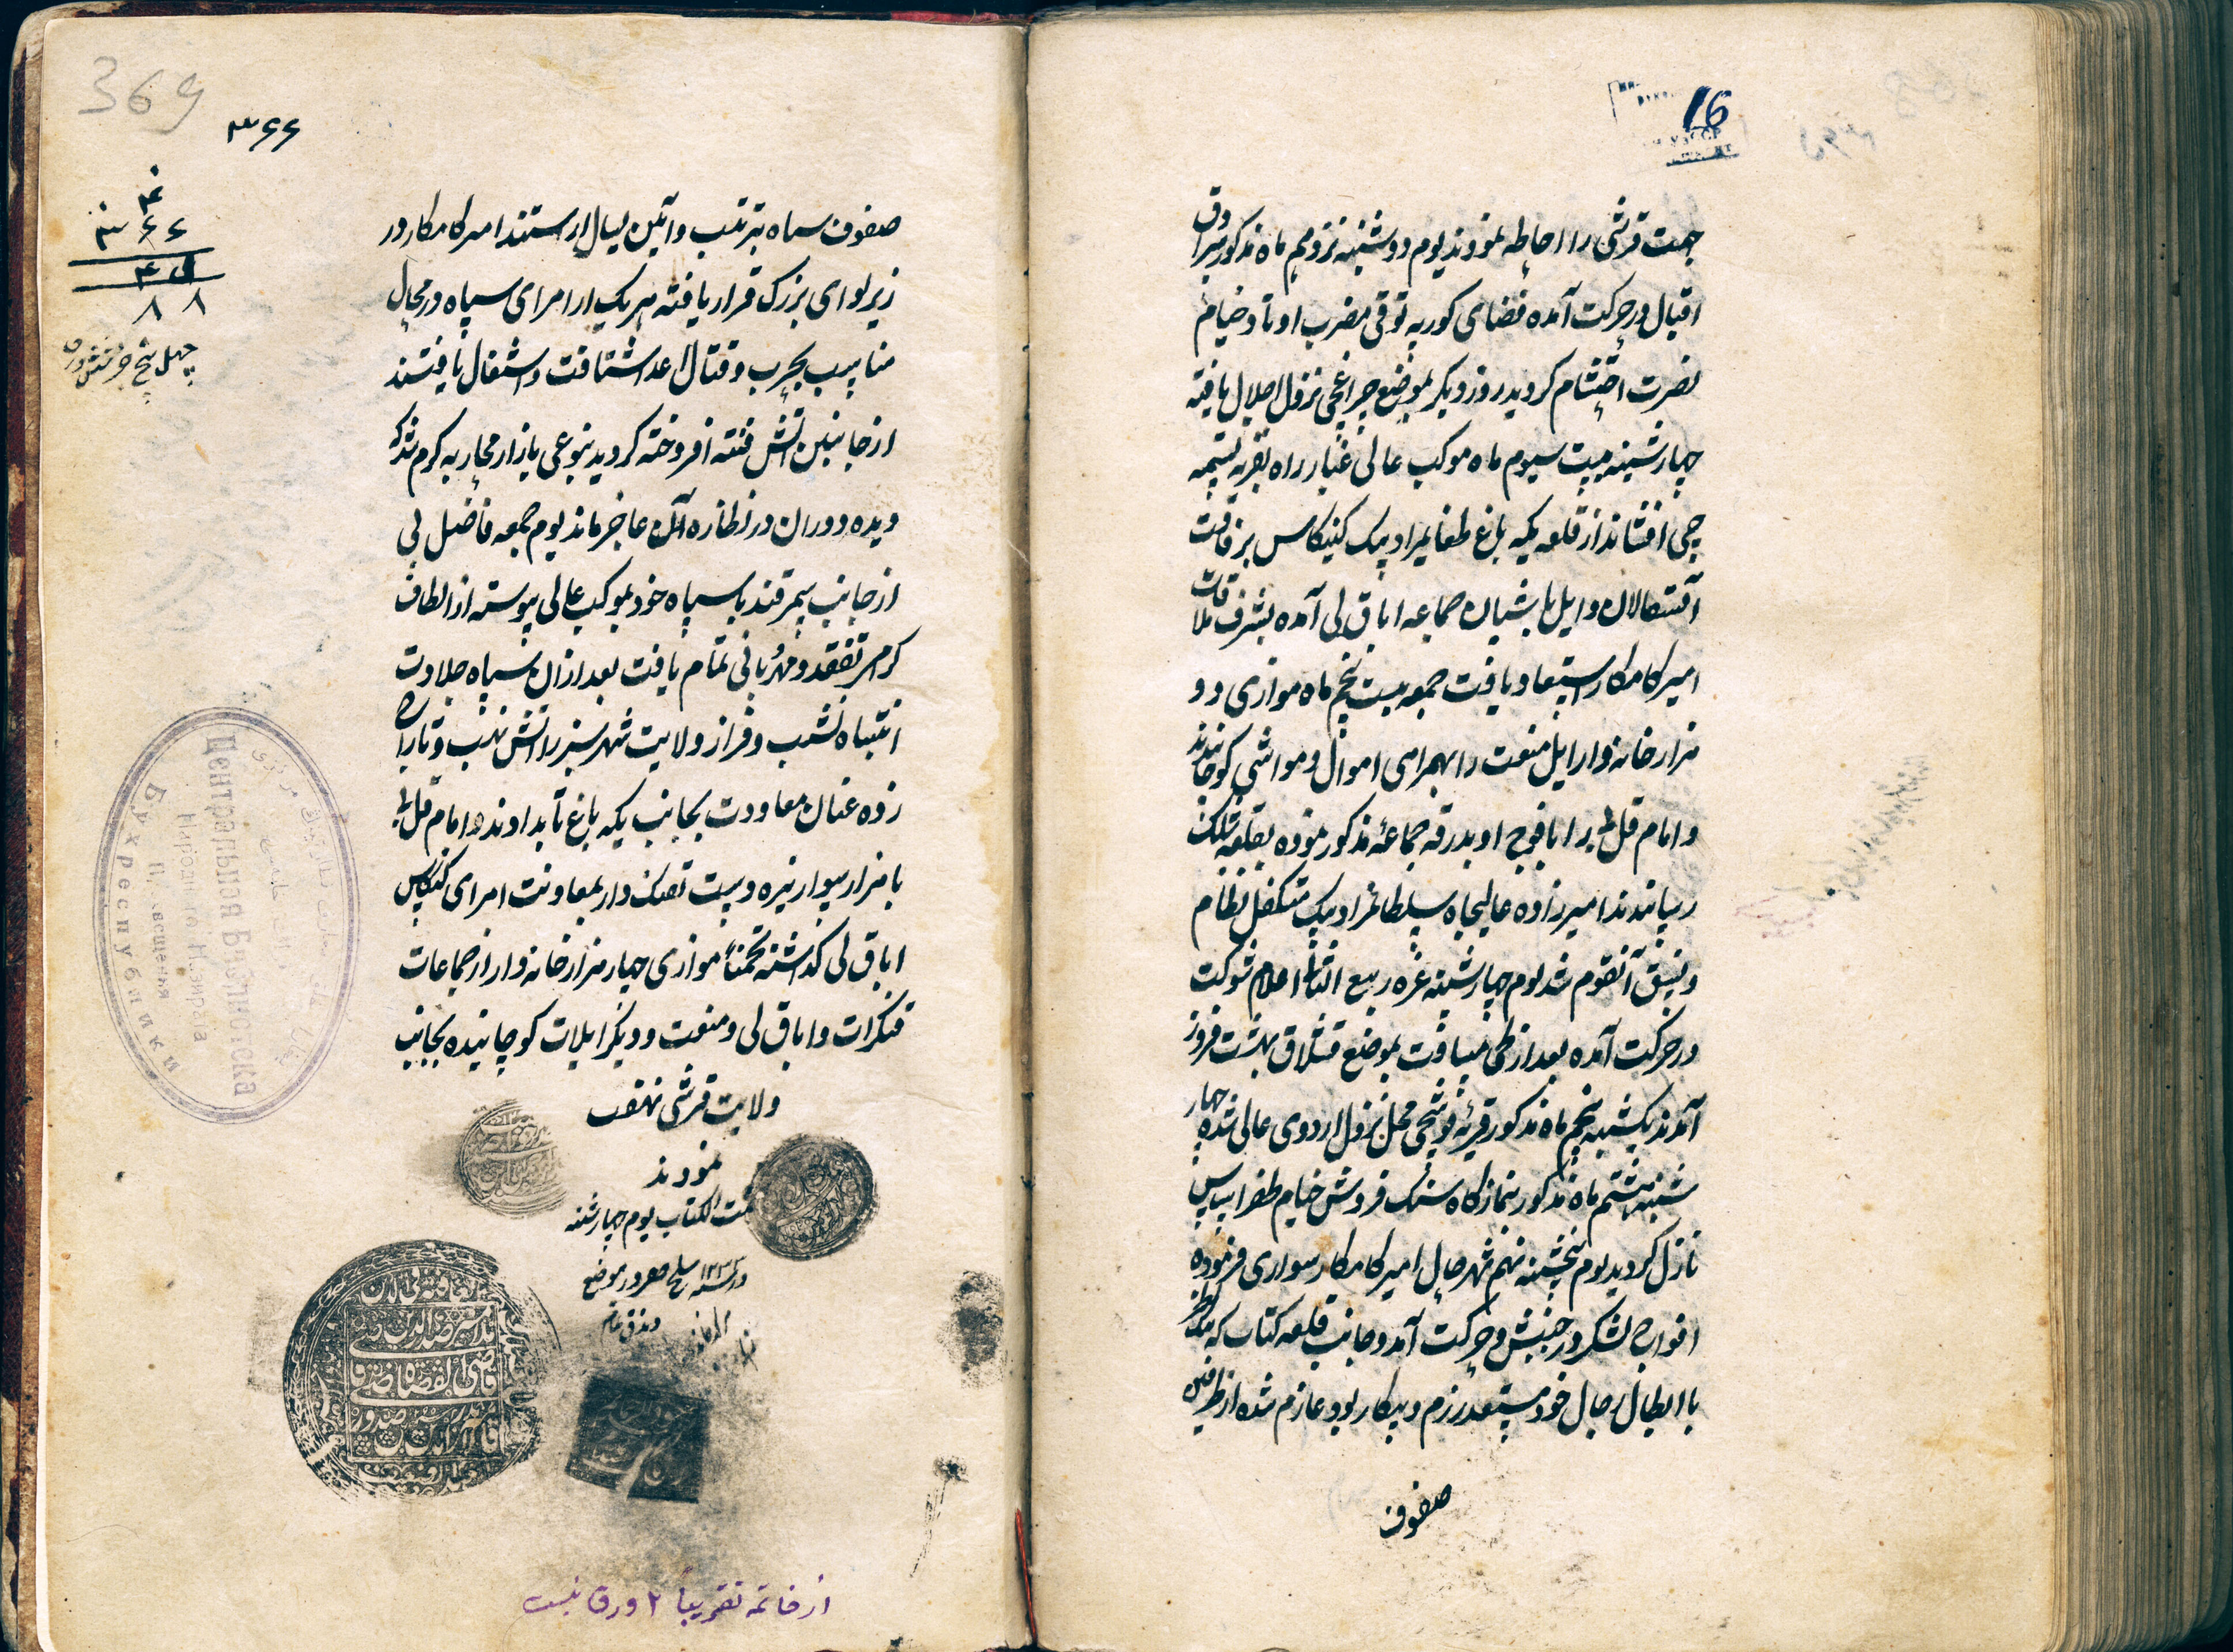 16
جهت قرشی را احاطه نمودند یوم دوشنبه نزدهم ماه مذکور سرادق
اقبال در حرکت آمده فضای کوربه توقی مضرب اوتاد و خیام
نصرت احتشام کردید روز دیکر بموضع چراغچی نزول اجلال یافته
چهارشنبه بیست سیوم ماه موکب عالی غبار راه بقریه تسمه
چی افشاند از قلعه یکه باغ طغایمراد بیک کنیکاس برفاقت
آقسقالان و ایل باشیان جماعه اباق لی آمده بشرف ملاقات
امیر کامکار استسعاد یافت جمعه بیست پنجم ماه موازی دو
هزار خانه وار ایل منغت را بهمراهی اموال و مواشی کوچانیدند
و امام قلی را با فوج او بدرقه جماعهٔ مذکور نموده بقلعه شلک
رسانیدند امیرزاده عالیجاه سلطانمراد بیک متکفل نظام
و نسق آنقوم شد یوم چهارشنبه غره ربیع الثانی اعلام شوکت
در حرکت آمده بعد از طی مسافت بموضع قشلاق بهزت فروز
آمدند یکشنبه پنجم ماه مذکور قریه قوشچی محل نزول اردوی عالی شده چهار
شنبه هشتم ماه مذکور نمازکاه سنک فروش خیام ظفر اساس
نازل کردید یوم پنجشنبه نهم شهر حال امیر کامکار سواری فرموده
افواج لشکر در جنبش و حرکت آمد و جانب قلعه کتاب که
با ابطال رجال خود مستعد رزم و پیکار بود عازم شده از طرفین
صفوف
369
۳۶۶
۴
۳۶۶
۸۸
چهل پنج جز شش ورق
صفوف سپاه بترتیب و آئین یسال آراستند امیر کامکار در
زیر لوای بزرک قرار یافته هر یک از امرای سپاه در محال
مناسب بحرب و قتال اعدا شتافت و اشتغال یافتند
از جانبین آتش فتنه افروخته کردید بنوعی بازار محاربه کرم شد که
دیده دوران در نظاره آن عاجز ماند یوم جمعه فاضل بی
از جانب سمرقند با سپاه خود بموکب عالی پیوسته از الطاف
کرم سر تفقد و مهربانی تمام یافت بعد از ان سپاه جلادت
انتباه نشیب و فراز ولایت شهر سبز را آتش نهب و تاراج
زده عنان معاودت بجانب یکه باغ تاب دادند و امام قلی
با هزار سوار نیزه و بیست تفنک دار بمعاونت امرای کنیکاس
اباق لی کذاشته تخمیناً موازی چهار هزار خانه وار از جماعات
قنکرات و اباق لی و منغت و دیکر ایلات کوچانیده بجانب
ولایت قرشی نهضت
نمودند
تمت الکتاب یوم چهارشنبه
در سلخ صفر در موضع
Центральная Библиотека
Народного Назирата
Просвещения
Бухреспублики
قاضی القضاة
از خاتمه تقریباً ۲ ورق نیست